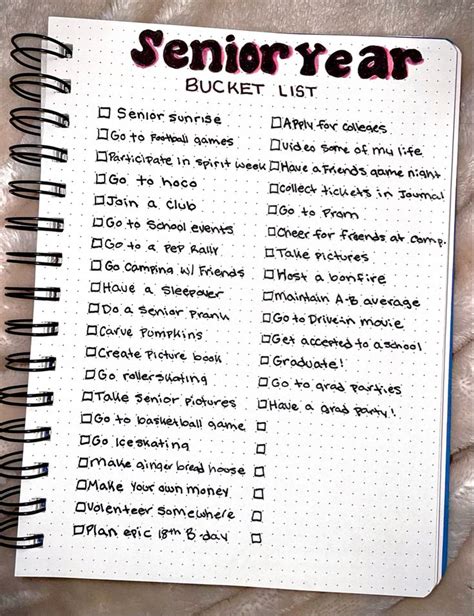 Senior Year
BUCKET LIST
Senior Sunrise
Go to Football games
Participate in spirit week
Go to hoco
Join a club
Go to School events
Go to a Pep Rally
Go Camping w/ Friends
Have a Sleepover
Do a Senior Prank
Carve Pumpkins
Create Picture book
Go rollerskating
Take Senior pictures
Go to basketball game
Go Iceskating
Make ginger bread house
Make Your own money
Volenteer Somewhere
Plan epic 18th B-day
Apply for colleges
Video some of my life
Have a Friends game night
Collect tickets in Journal
Go to Prom
Cheer for friends at comp.
Take Pictures
Host a bonfire
Maintain A-B average
Go to Drive-in movie
Get accepted to a school
Graduate!
Go to grad parties
Have a grad party!